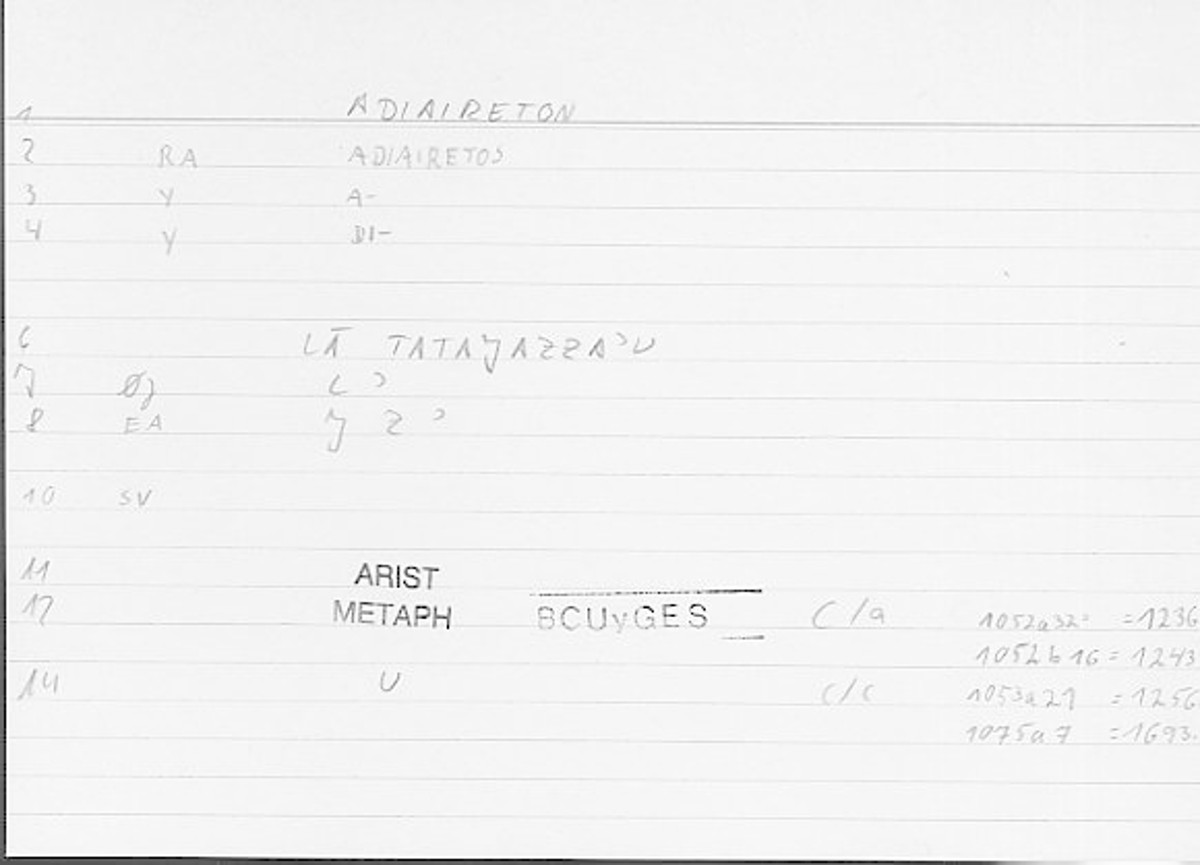 1 ADIAIRETON
2 RA ADIAIRETOS
3 Y A-
4 Y DI-
6 LĀ TATAJAZZA'U
7 ØJ L '
8 EA J Z '
10 SV
11 ARIST
12 METAPH BCUyGES C/a 1052a32 =1236
1052b16 = 1243
14 U C/C 1053a21 =1256
1075a7 =1693